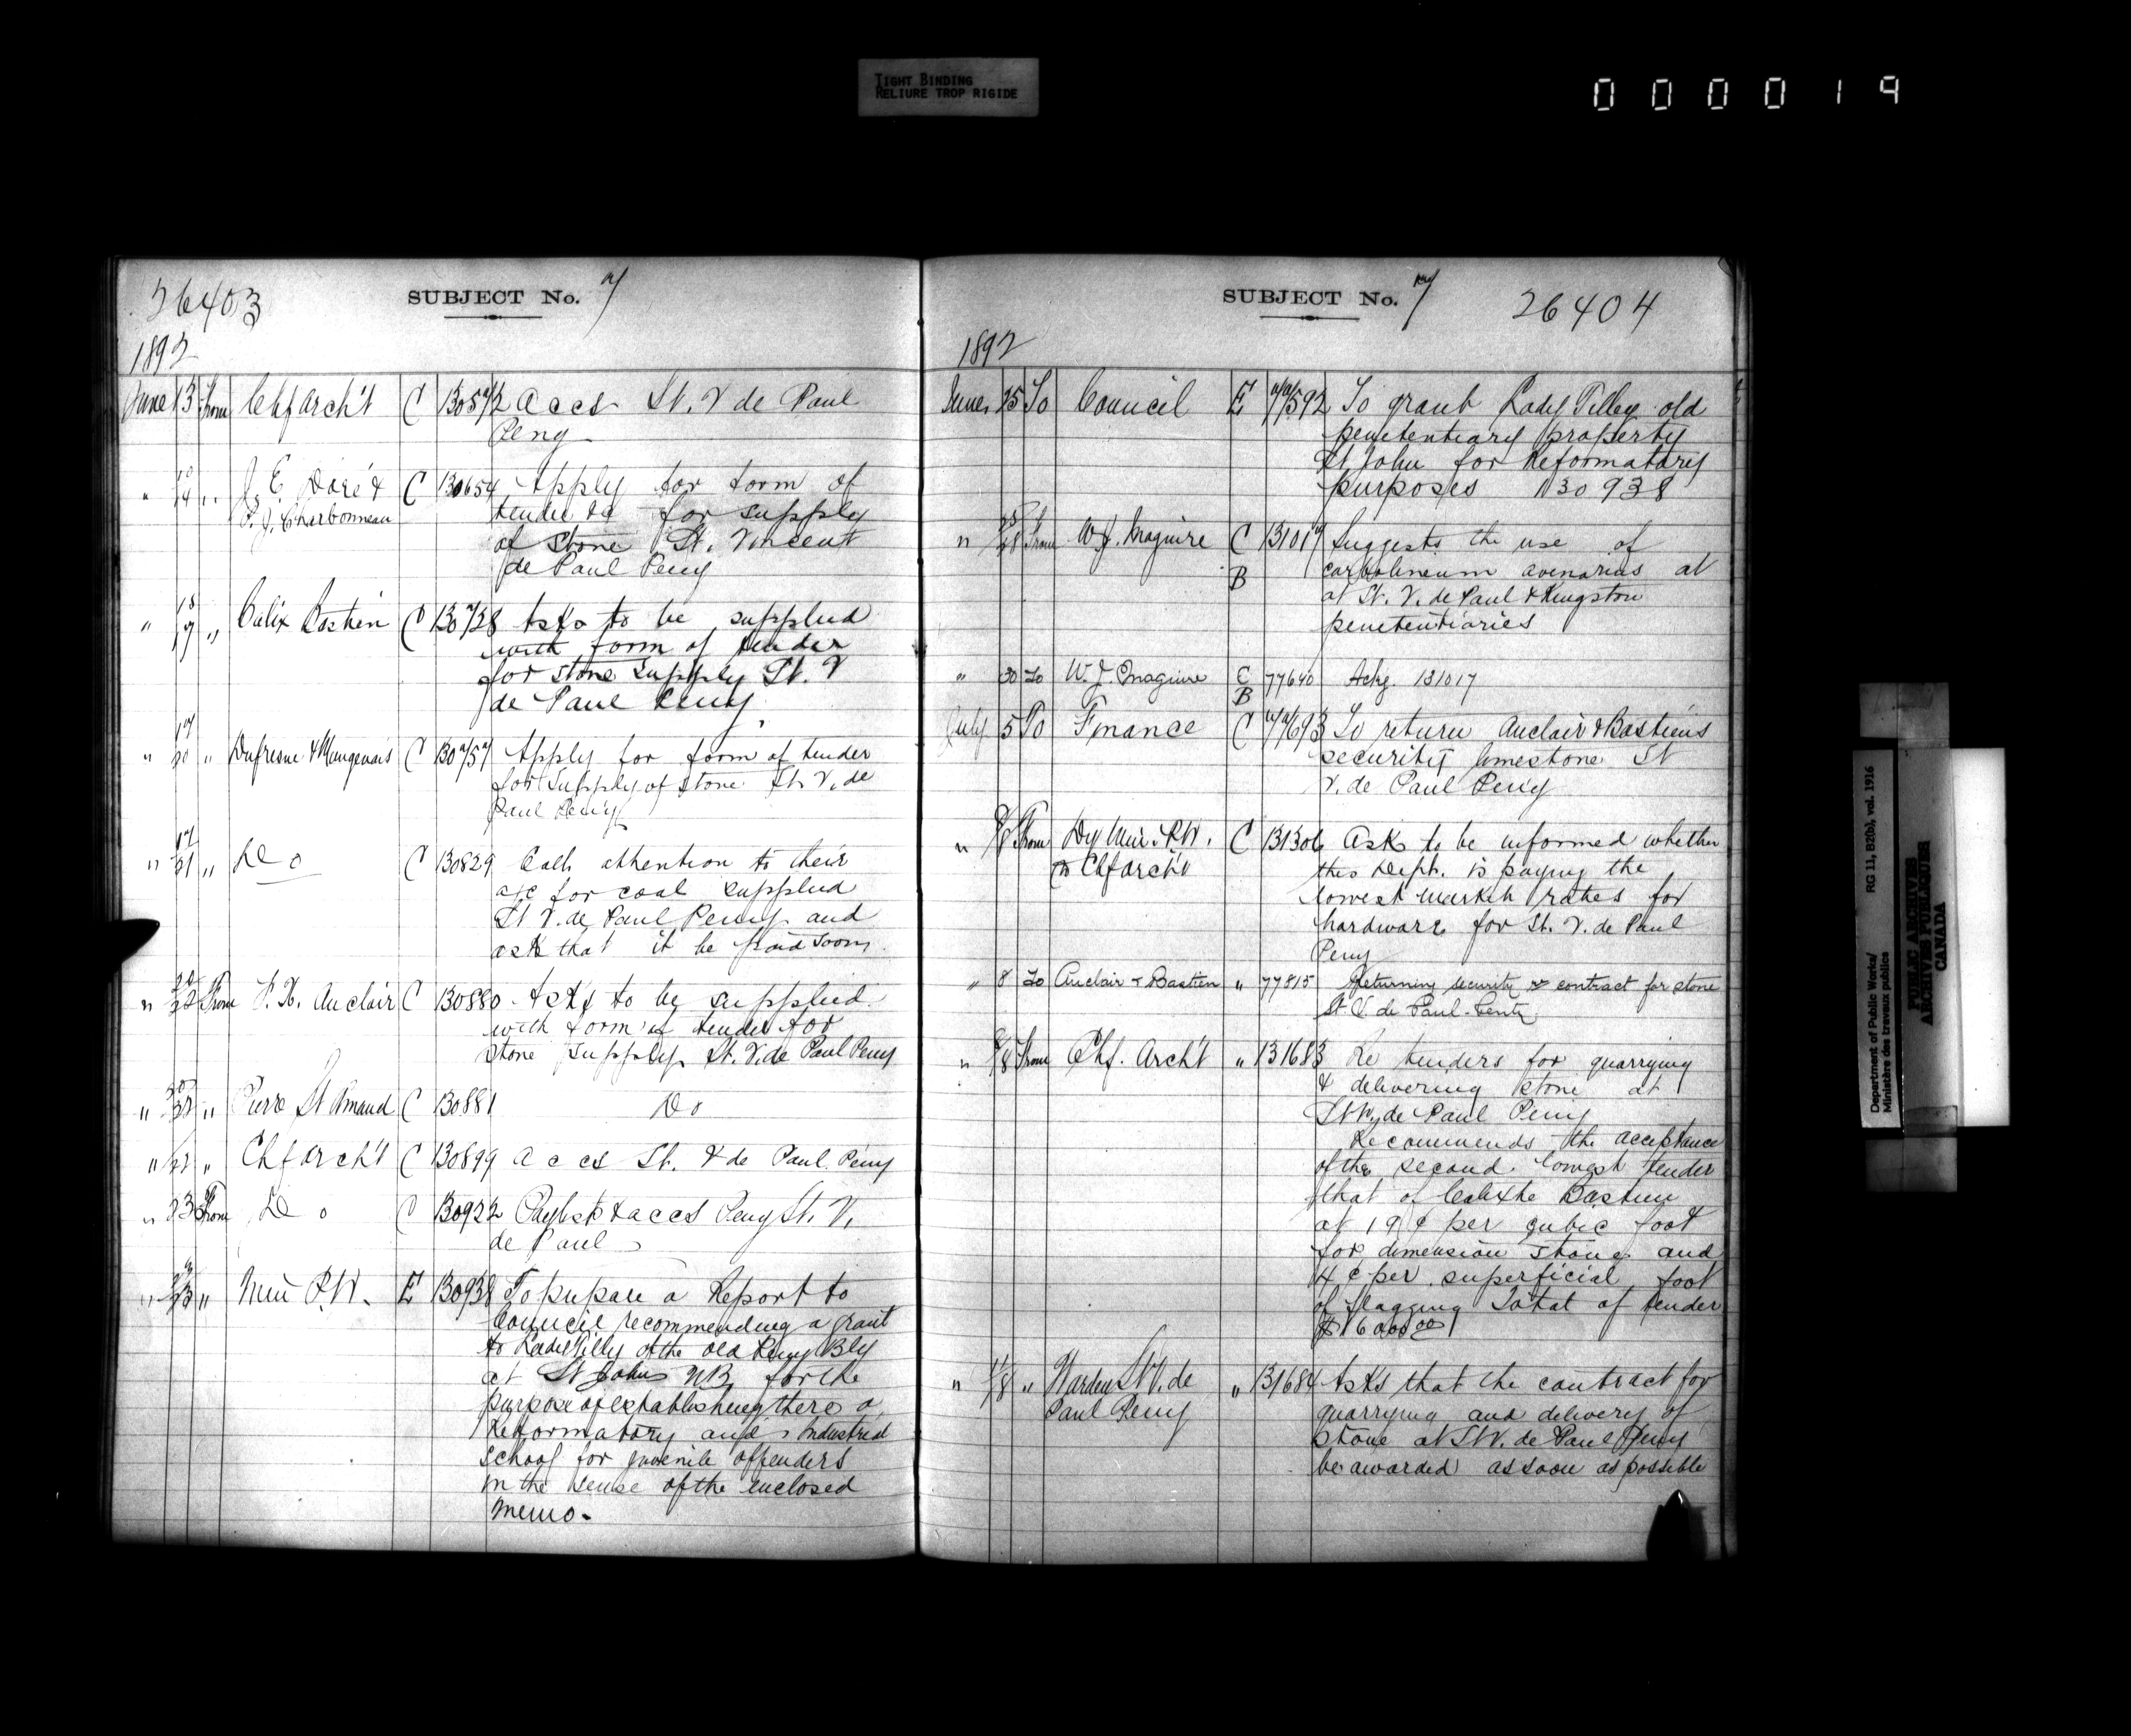 TIGHT BINDING
RELIURE TROP RIGIDE
000019
26403
SUBJECT No. 7
1892
June 13 From Chf Arch't C 130572 Accs St. V de Paul
Peny
" 10/14 " J. E. Doré & C 130654 Apply for form of
P. J. Charbonneau tender &c for supply
of stone St. Vincent
de Paul Peny
" 15/17 " Calix Bastien C 130728 Asks to be supplied
with form of tender
for stone supply St. V
de Paul Peny
" 17/20 " Dufresne & Mongenais C 130757 Apply for form of tender
for supply of stone St. V. de
Paul Peny
" 17/21 " Do C 130829 Calls attention to their
a/c for coal supplied
St V. de Paul Peny and
ask that it be paid soon.
" 22 From P. X. Auclair C 130880 Asks to be supplied
with form of tender for
stone supply St. V. de Paul Peny
" 22 " Pierre St Amand C 130881 Do
" 22 " Chf Arch't C 130899 Accs St. V de Paul Peny
" 23 From Do C 130922 Paylist & accs Peny St. V.
de Paul
" 23 " Min P.W. E 130938 To prepare a Report to
Council recommending a grant
to Lady Tilly of the old Peny Bly
at St John N.B. for the
purpose of establishing there a
Reformatory and Industrial
School for juvenile offenders
in the sense of the enclosed
memo.
SUBJECT No. 7
26404
1892
June 25 To Council E 77592 To grant Lady Tilley old
penetentiary property
St John for Reformatory
purposes 130938
" 25/28 From W. J. Maguire C 131017 Suggests the use of
B carbolineum avenarius at
at St. V. de Paul & Kingston
penetentiaries
" 30 To W. J. Maguire C 77640 Ackg. 131017
B
July 5 To Finance C 77693 To return Auclair & Bastien's
security limestone St
V. de Paul Peny
" 8 From Dy Min. P.W. C 131306 Ask to be informed whether
to Chf Arch't this Dept. is paying the
lowest market rates for
hardware for St. V. de Paul
Peny
" 8 To Auclair & Bastien " 77815 Returning security & contract for stone
St. V. de Paul Penty
" 8 From Chf. Arch't " 131683 Re tenders for quarrying
& delivering stone at
St V. de Paul Peny
Recommends the acceptance
of the second lowest tender
that of Calixte Bastien
at 19¢ per cubic foot
for dimension stone and
4¢ per superficial foot
of flagging Total of tender
$16000.00
" 11/8 " Warden St V. de " 131684 Asks that the contract for
Paul Peny quarrying and delivery of
stone at St V. de Paul Peny
be awarded as soon as possible
Department of Public Works/ RG 11, B2(b), vol. 1916
Ministère des travaux publics
PUBLIC ARCHIVES
ARCHIVES PUBLIQUES
CANADA